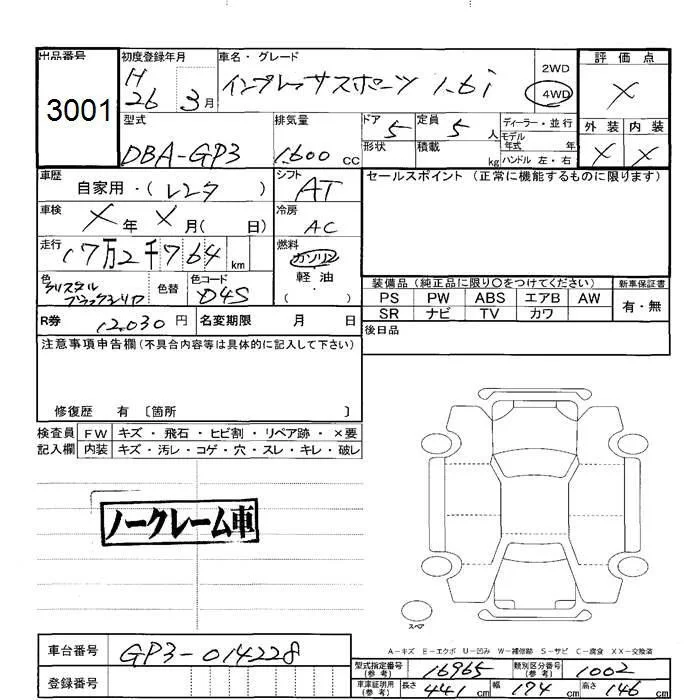 出品番号 初度登録年月 車名・グレード 2WD 評価点
3001 H 26 3月 インプレッサスポーツ 1.6i 4WD X
型式 排気量 ドア 5 定員 5 人 ディーラー・並行 外装 内装
DBA-GP3 1.600 cc 形状 積載 kg モデル年式 年 X X
ハンドル 左・右
車歴 自家用・(レンタ) シフト AT セールスポイント(正常に機能するものに限ります)
車検 X年 X月( 日) 冷房 AC
走行 17万2千764 km 燃料 ガソリン
軽油
( ・ )
色 クリスタルブラックシリカ 色替 色コード D4S 装備品(純正品に限り○をつけてください) 新車保証書
PS PW ABS エアB AW 有・無
SR ナビ TV カワ
R券 12,030円 名変期限 月 日 後日品
注意事項申告欄(不具合内容等は具体的に記入して下さい)
修復歴 有〔箇所 〕
検査員 FW キズ・飛石・ヒビ割・リペア跡・×要
記入欄 内装 キズ・汚レ・コゲ・穴・スレ・キレ・破レ
ノークレーム車
スペア
A-キズ E-エクボ U-凹み W-補修跡 S-サビ C-腐食 XX-交換済
車台番号 GP3-014228 型式指定番号(参考) 16965 類別区分番号(参考) 1002
登録番号 車庫証明用(参考) 長さ 441 cm 幅 174 cm 高さ 146 cm